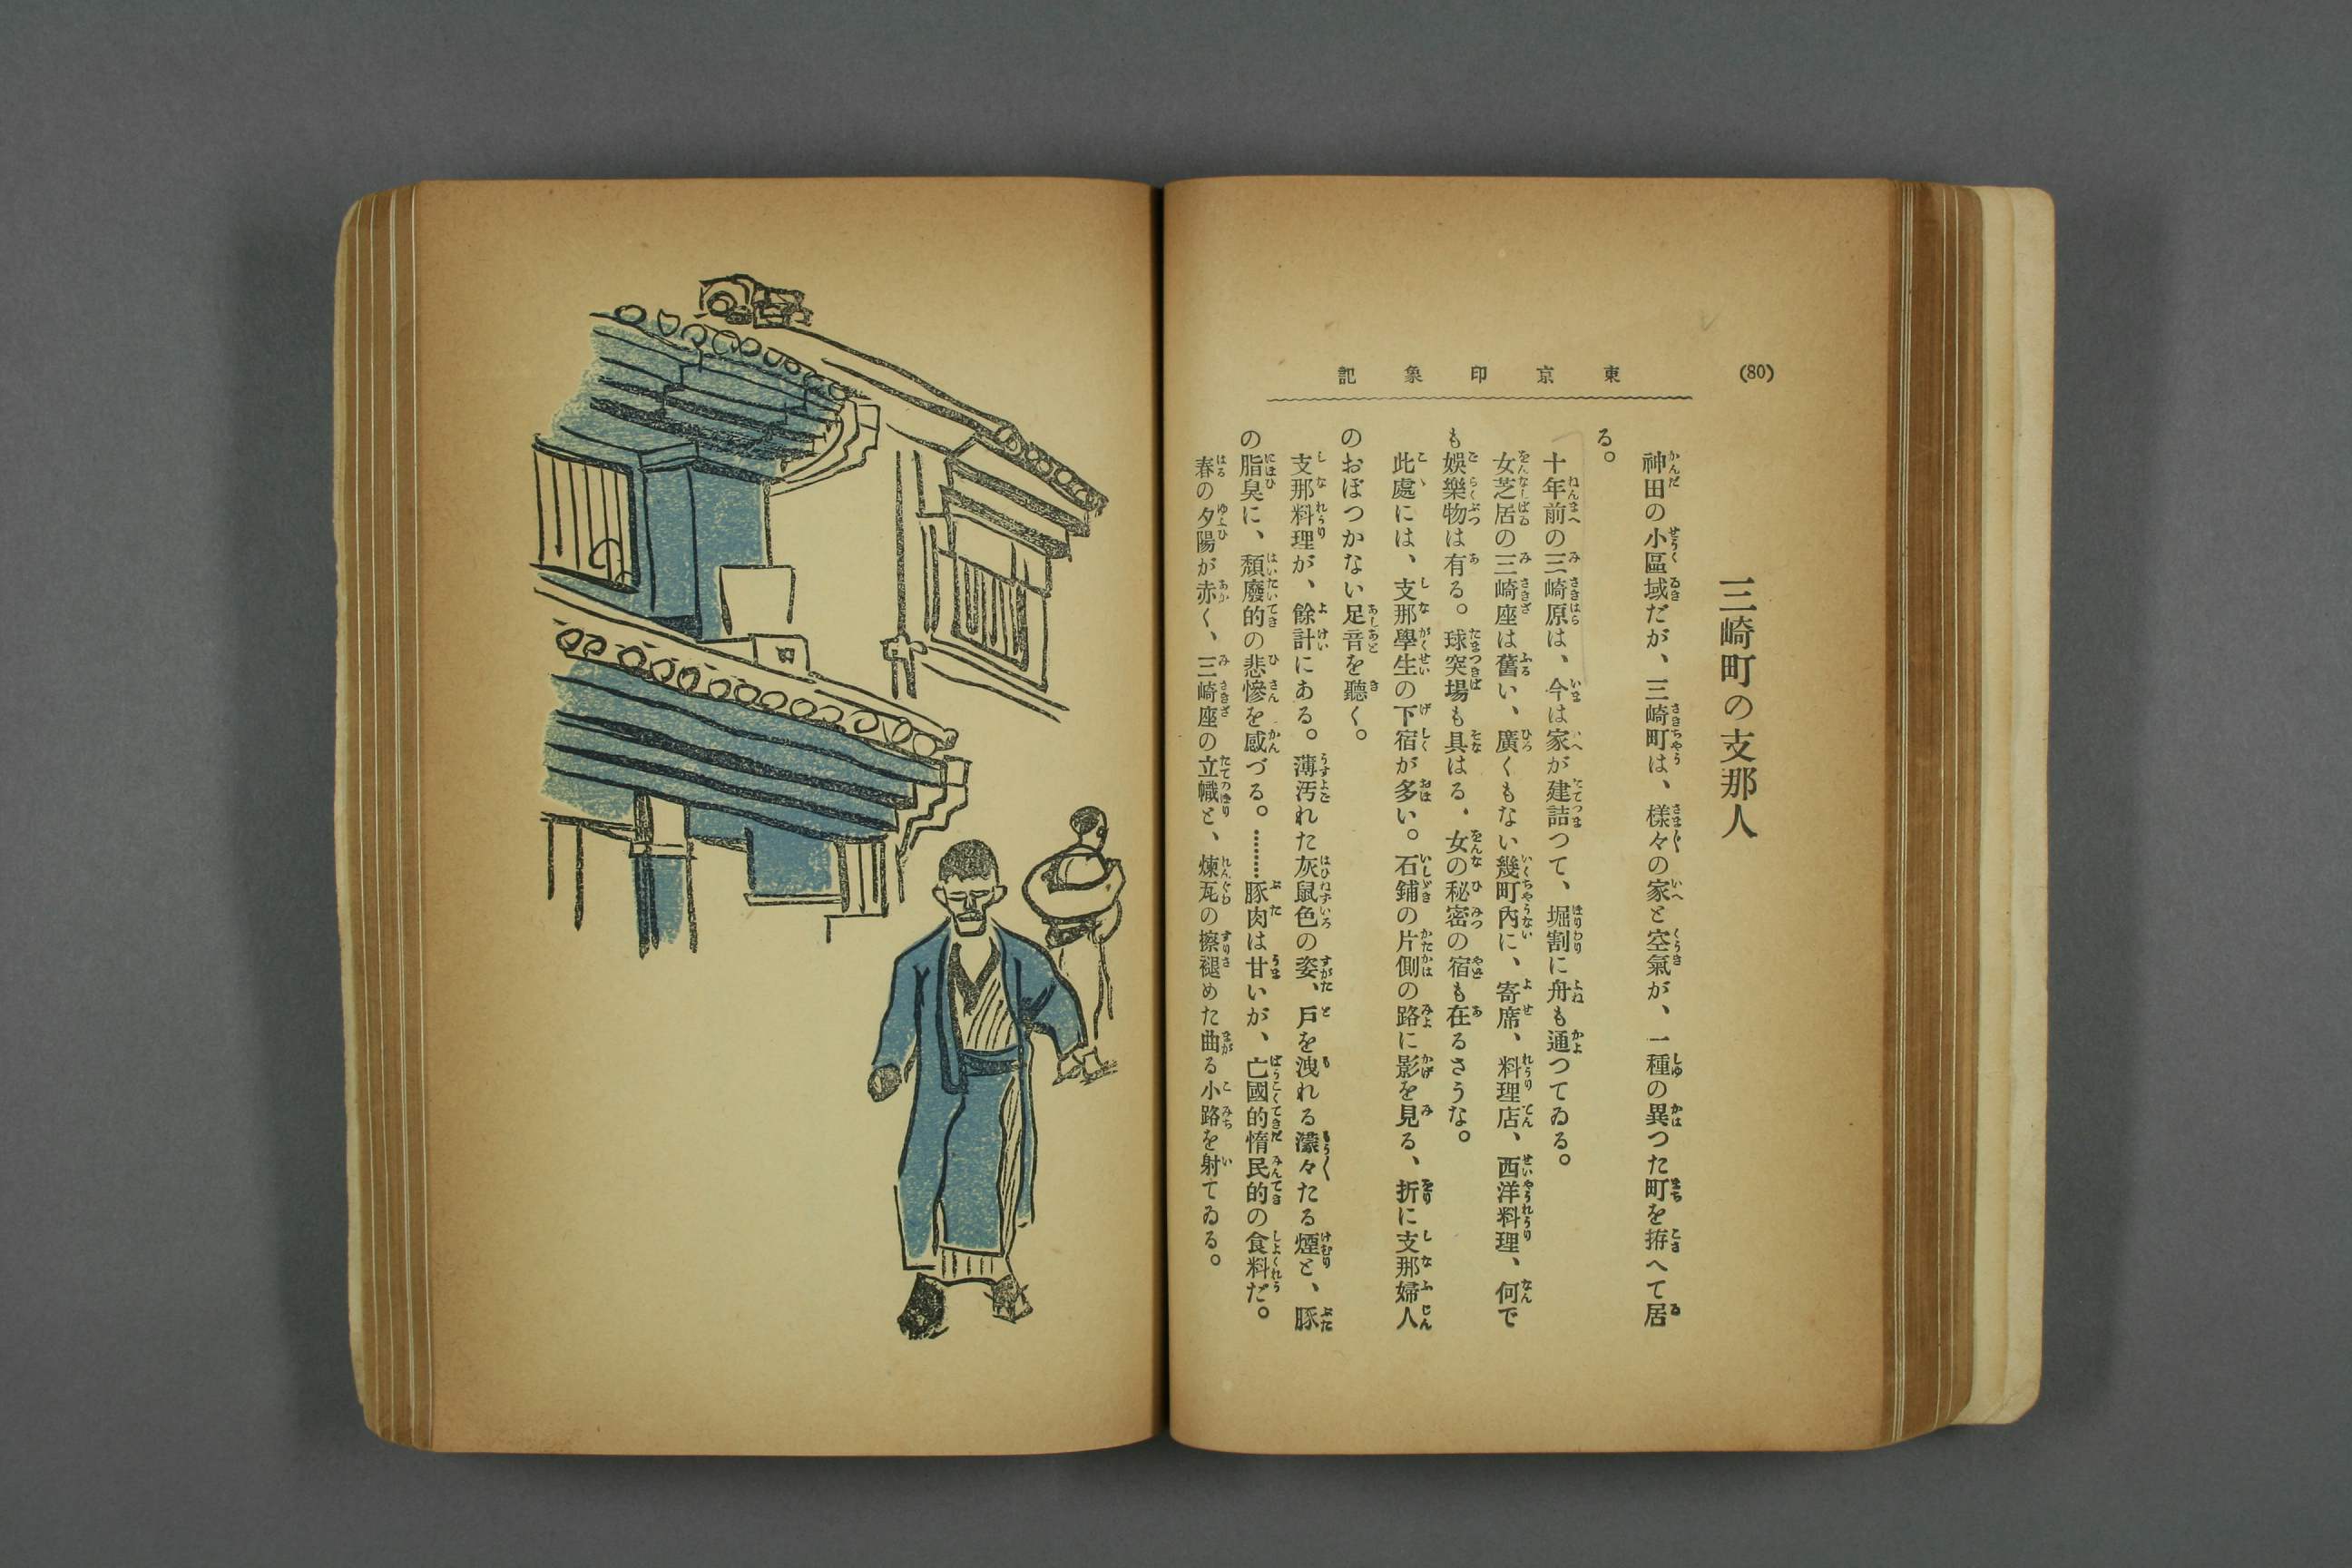 (80)
東京印象記
三崎町の支那人
神田の小區域だが、三崎町は、樣々の家と空氣が、一種の異つた町を拵へて居
る。
十年前の三崎原は、今は家が建詰つて、堀割に舟も通つてゐる。
女芝居の三崎座は舊い、廣くもない幾町內に、寄席、料理店、西洋料理、何で
も娯樂物は有る。球突場も具はる、女の秘密の宿も在るさうな。
此處には、支那學生の下宿が多い。石鋪の片側の路に影を見る、折に支那婦人
のおぼつかない足音を聽く。
支那料理が、餘計にある。薄汚れた灰鼠色の姿、戸を洩れる濛々たる煙と、豚
の脂臭に、頽廢的の悲慘を感づる。………豚肉は甘いが、亡國的惰民的の食料だ。
春の夕陽が赤く、三崎座の立幟と、煉瓦の擦褪めた曲る小路を射てゐる。